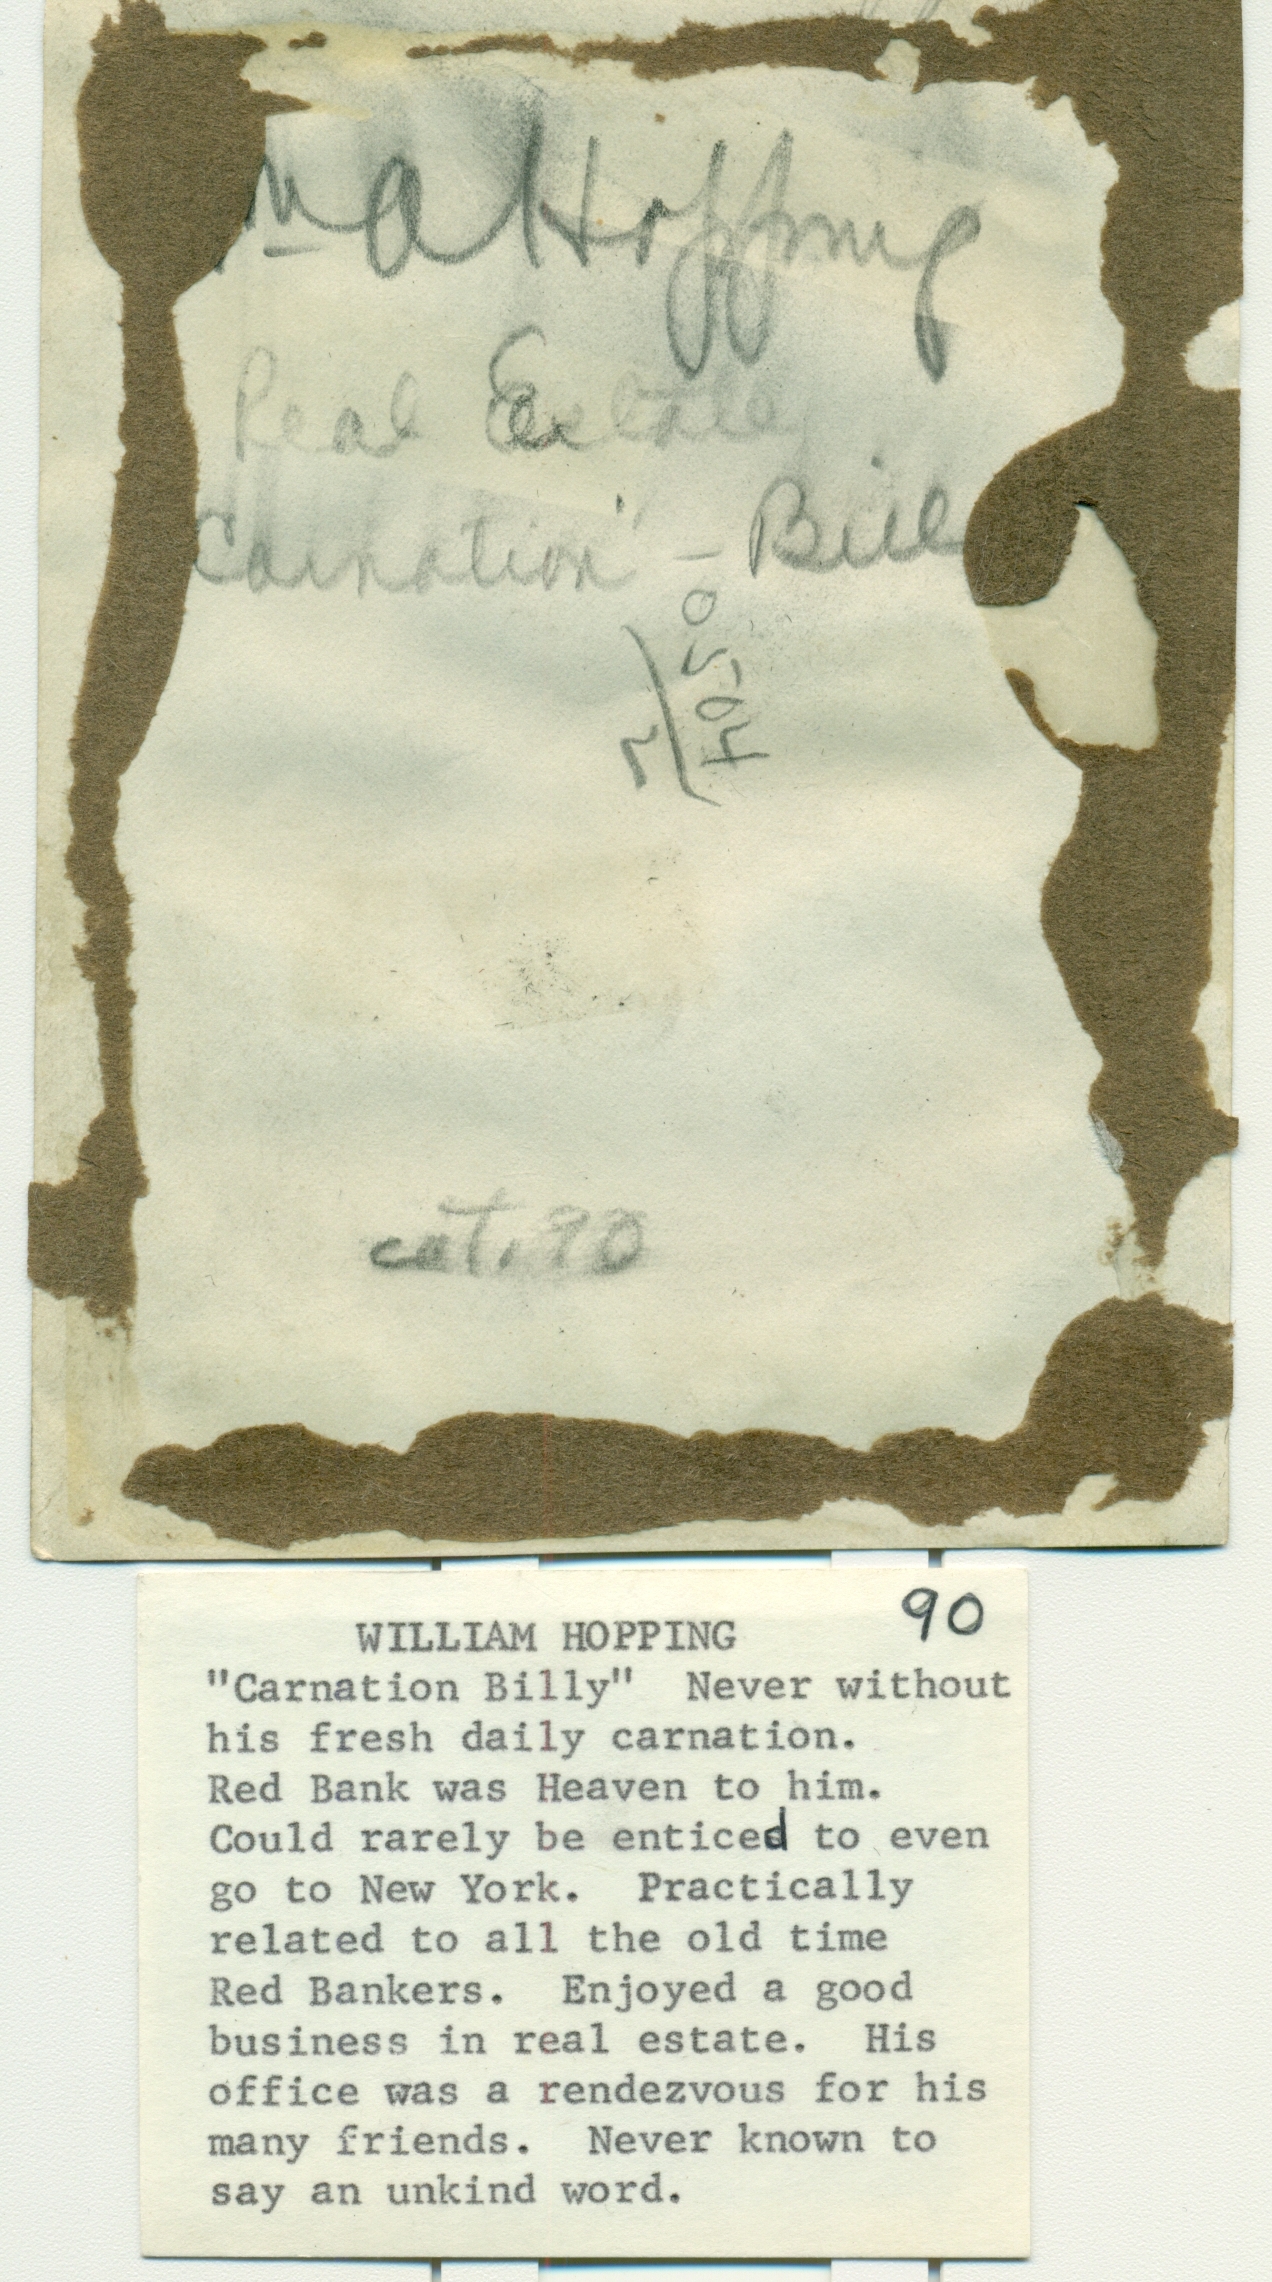 m A Hopping
Real Estate
Carnation' - Bill
cat. 90
90
WILLIAM HOPPING
"Carnation Billy" Never without
his fresh daily carnation.
Red Bank was Heaven to him.
Could rarely be enticed to even
go to New York. Practically
related to all the old time
Red Bankers. Enjoyed a good
business in real estate. His
office was a rendezvous for his
many friends. Never known to
say an unkind word.